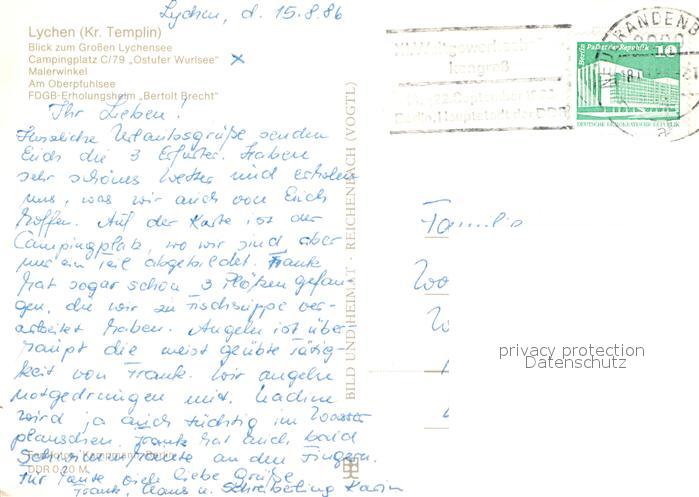 Lychen, d. 15.8.86
Lychen (Kr. Templin)
Blick zum Großen Lychensee
Campingplatz C/79 „Ostufer Wurlsee" x
Malerwinkel
Am Oberpfuhlsee
FDGB-Erholungsheim „Bertolt Brecht"
Ihr Lieben!
Herzliche Urlaubsgrüße senden
Euch die 3 Erfurter. Haben
sehr schönes Wetter und erholen
uns, was wir auch von Euch
hoffen. Auf der Karte ist der
Campingplatz, wo wir sind aber
nur ein Teil abgebildet. Frank
hat sogar schon 3 Plötzen gefan-
gen, die wir zu Fischsuppe ver-
arbeitet haben. Angeln ist über-
haupt die meist geübte Tätig-
keit von Frank. Wir angeln
notgedrungen mit. Nadine
wird ja auch tüchtig im Wasser
planschen. Frank hat auch bald
an den Fingern.
DDR 0,20 M
Für heute viele liebe Grüße
Frank, u. Karin
BILD UND HEIMAT · REICHENBACH (VOGTL)
XI. Weltgewerkschafts-
kongreß
Berlin, Hauptstadt der DDR
BRANDENB
Berlin, Palast der Republik 10
DEUTSCHE DEMOKRATISCHE REPUBLIK
Familie
privacy protection
Datenschutz